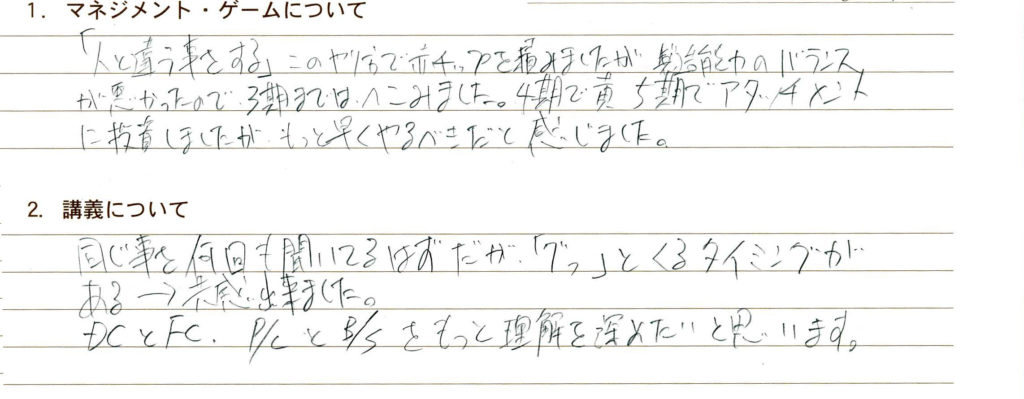 1. マネジメント・ゲームについて
「人と違う事をする」このやり方で赤チップを積みましたが 製造能力のバランス
が悪かったので、3期までは、へこみました。4期で黄 5期でアタッチメント
に投資しましたが、もっと早くやるべきだと感じました。
2. 講義について
同じ事を何回も聞いてるはずだが、「グっ」とくるタイミングが
ある→共感出来ました。
DCとFC、P/LとB/Sをもっと理解を深めたいと思います。